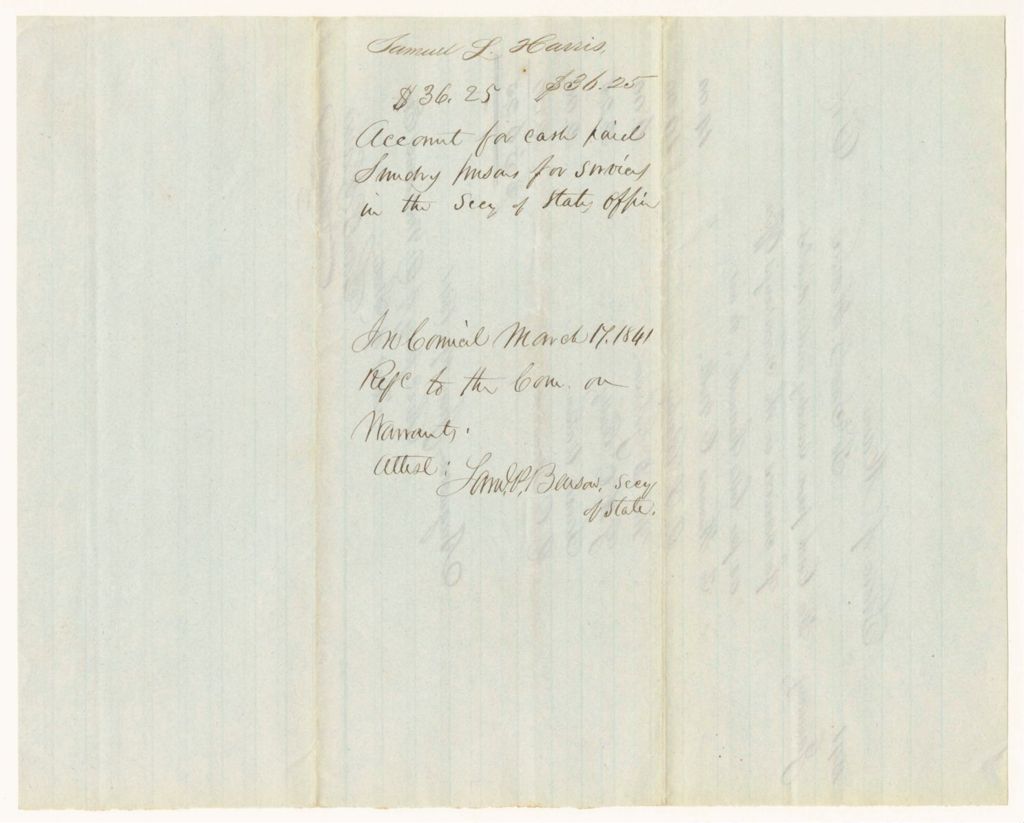 Samuel L. Harris,
$36.25 $36.25
Account for cash paid
Sundry persons for services
in the Secy of States Office
In Council March 17. 1841
Ref'd to the Com. on
Warrants.
Attest:
Saml. P. Benson, Secy
of State.